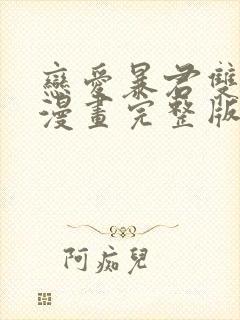 戀愛暴君雙
漫畫完整版
阿痴兒